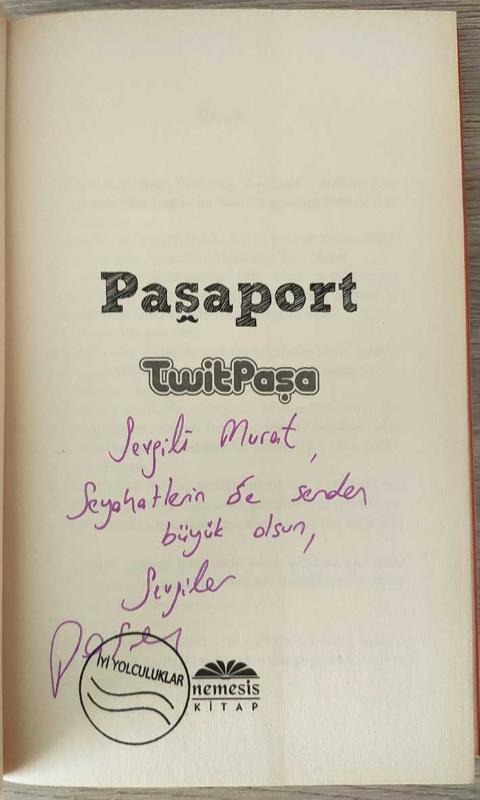 Paşaport
TwitPaşa
Sevgili Murat,
Seyahatlerin de senden
büyük olsun,
Sevgiler
İYİ YOLCULUKLAR
nemesis
KİTAP